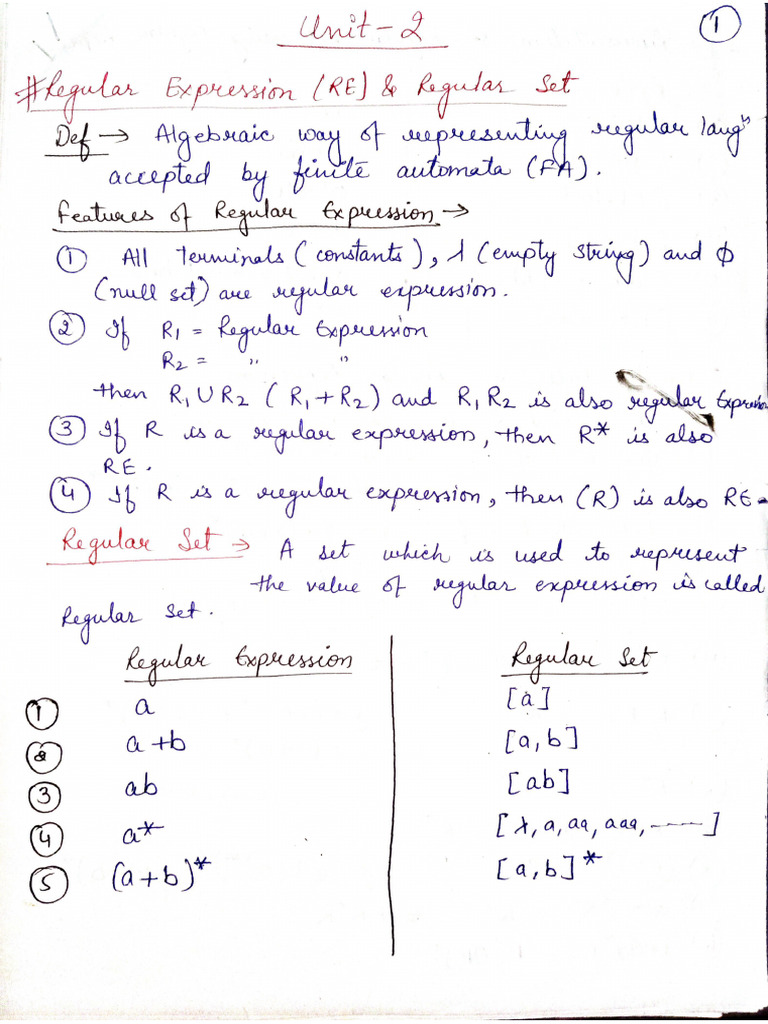 Unit-2
①
#Regular Expression (RE) & Regular Set
Def → Algebraic way of representing regular langⁿ
accepted by finite automata (FA).
Features of Regular Expression →
① All terminals (constants), λ (empty string) and ϕ
(null set) are regular expression.
② If R1 = Regular Expression
R2 = " "
then R1 U R2 (R1 + R2) and R1R2 is also regular Expression
③ If R is a regular expression, then R* is also
RE.
④ If R is a regular expression, then (R) is also RE.
Regular Set → A set which is used to represent
the value of regular expression is called
Regular Set.
Regular Expression Regular Set
① a [a]
② a+b [a,b]
③ ab [ab]
④ a* [λ, a, aa, aaa, -----]
⑤ (a+b)* [a,b]*